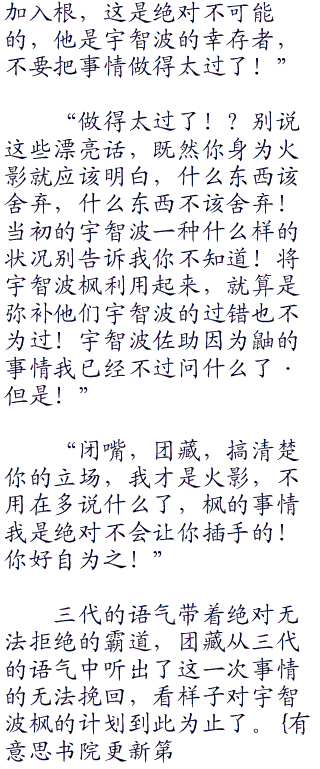 加入根，这是绝对不可能
的，他是宇智波的幸存者，
不要把事情做得太过了！”
“做得太过了！？别说
这些漂亮话，既然你身为火
影就应该明白，什么东西该
舍弃，什么东西不该舍弃！
当初的宇智波一种什么样的
状况别告诉我你不知道！将
宇智波枫利用起来，就算是
弥补他们宇智波的过错也不
为过！宇智波佐助因为鼬的
事情我已经不过问什么了·
但是！”
“闭嘴，团藏，搞清楚
你的立场，我才是火影，不
用在多说什么了，枫的事情
我是绝对不会让你插手的！
你好自为之！”
三代的语气带着绝对无
法拒绝的霸道，团藏从三代
的语气中听出了这一次事情
的无法挽回，看样子对宇智
波枫的计划到此为止了。{有
意思书院更新第